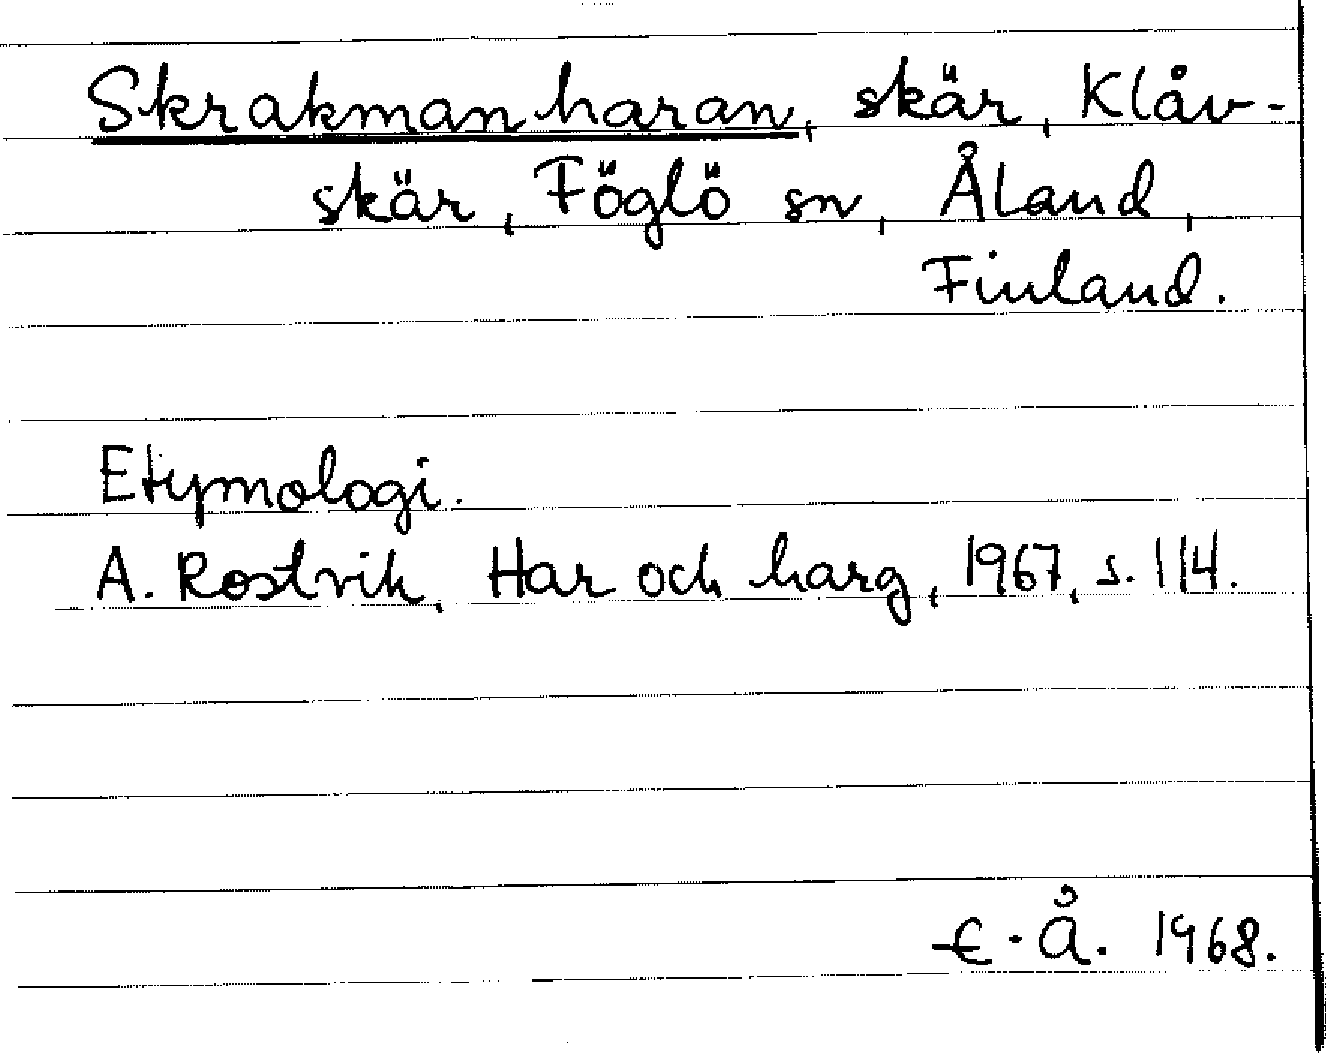 Skrakmanharan, skär, Klåv-
skär, Föglö sn, Åland,
Finland.
Etymologi.
A. Rostvik, Har och harg, 1967, s. 114.
E. Å. 1968.